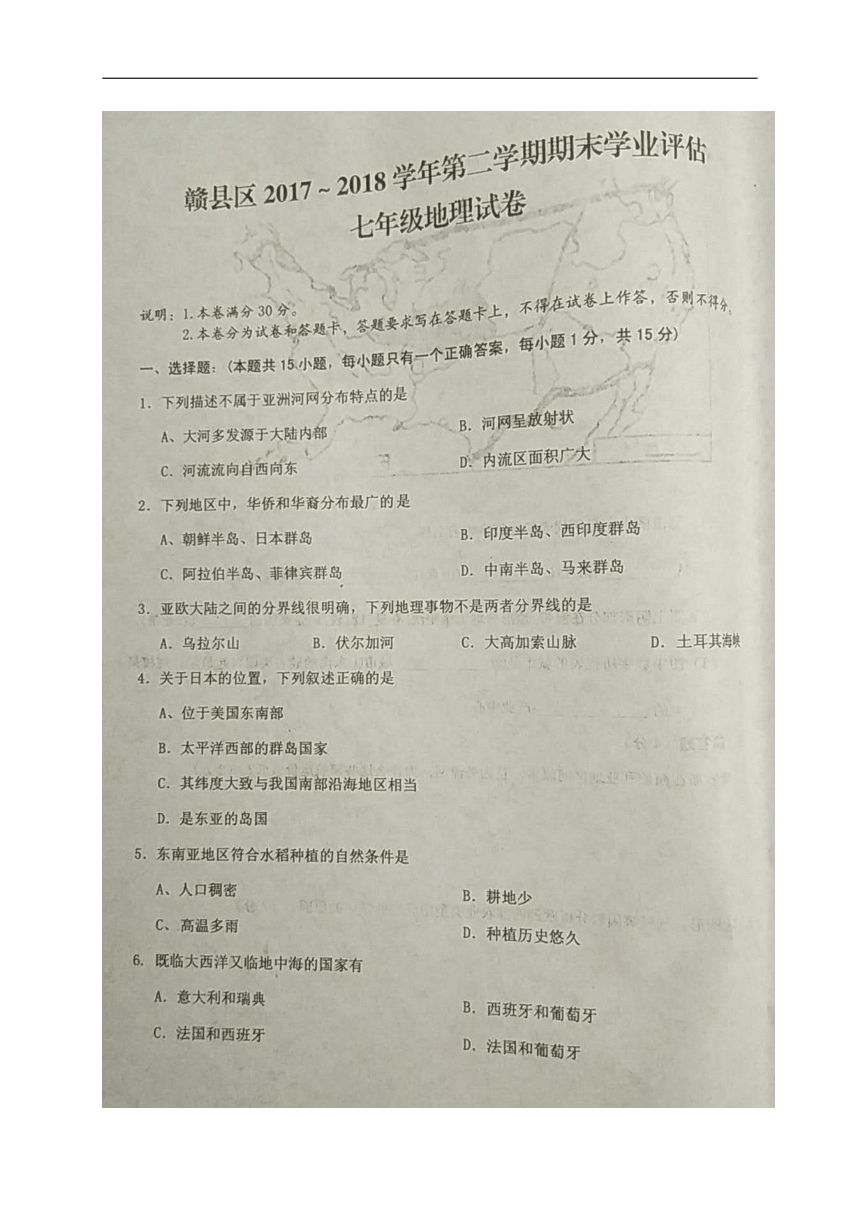 赣县区2017~2018学年第二学期期末学业评估
七年级地理试卷
说明：1.本卷满分30分。
2.本卷分为试卷和答题卡，答题要求写在答题卡上，不得在试卷上作答，否则不得分。
一、选择题：(本题共15小题，每小题只有一个正确答案，每小题1分，共15分)
1．下列描述不属于亚洲河网分布特点的是
A、大河多发源于大陆内部 B．河网呈放射状
C．河流流向自西向东 D．内流区面积广大
2．下列地区中，华侨和华裔分布最广的是
A、朝鲜半岛、日本群岛 B．印度半岛、西印度群岛
C．阿拉伯半岛、菲律宾群岛 D．中南半岛、马来群岛
3．亚欧大陆之间的分界线很明确，下列地理事物不是两者分界线的是
A．乌拉尔山 B．伏尔加河 C．大高加索山脉 D．土耳其海峡
4．关于日本的位置，下列叙述正确的是
A、位于美国东南部
B．太平洋西部的群岛国家
C．其纬度大致与我国南部沿海地区相当
D．是东亚的岛国
5．东南亚地区符合水稻种植的自然条件是
A、人口稠密 B．耕地少
C、高温多雨 D．种植历史悠久
6．既临大西洋又临地中海的国家有
A．意大利和瑞典 B．西班牙和葡萄牙
C．法国和西班牙 D．法国和葡萄牙